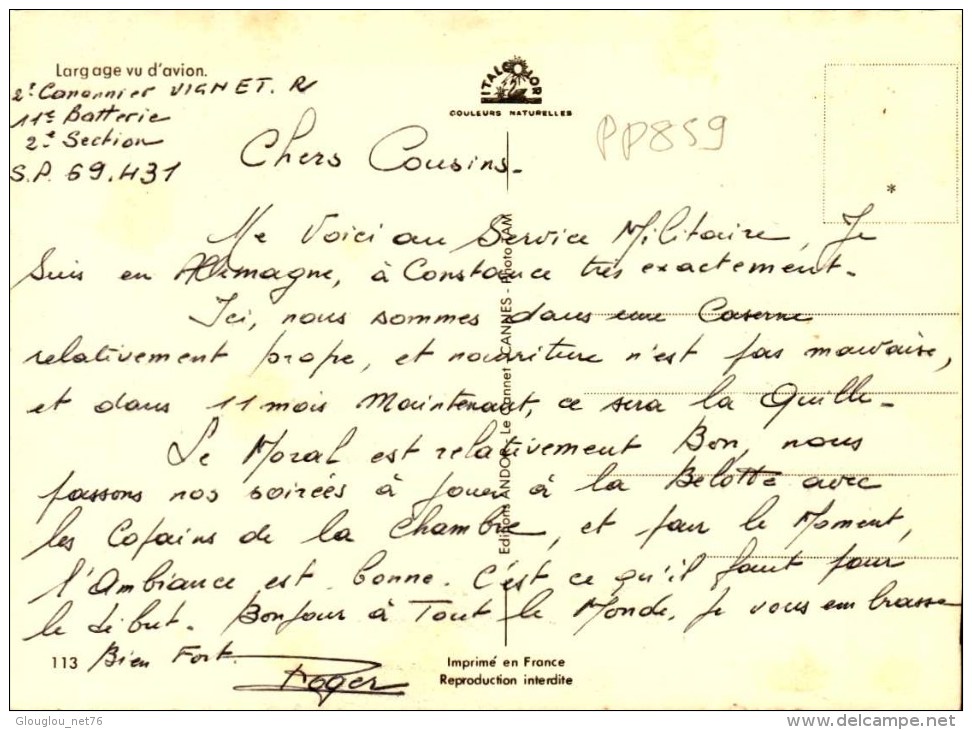 Largage vu d'avion.
2e Canonnier VIGNET. R
11e Batterie
2e Section
S.P. 69.431
ITALCOLOR
COULEURS NATURELLES
PP859
*
Chers Cousins.
Me Voici au Service Militaire, Je
Suis en Allemagne, à Constance très exactement.
Ici, nous sommes dans une Caserne
relativement propre, et nourriture n'est pas mauvaise,
et dans 11 mois Maintenant, ce sera la Quille.
Le Moral est relativement Bon, nous
passons nos soirées à jouer à la Belotte avec
les Copains de la Chambre, et pour le Moment,
l'Ambiance est bonne. C'est ce qu'il faut pour
le début. Bonjour à Tout le Monde, Je vous embrasse
Bien Fort.
Roger
113
Imprimé en France
Reproduction interdite
Le Cannet CANNES - Photo
Glouglou_net76
delcampe.net